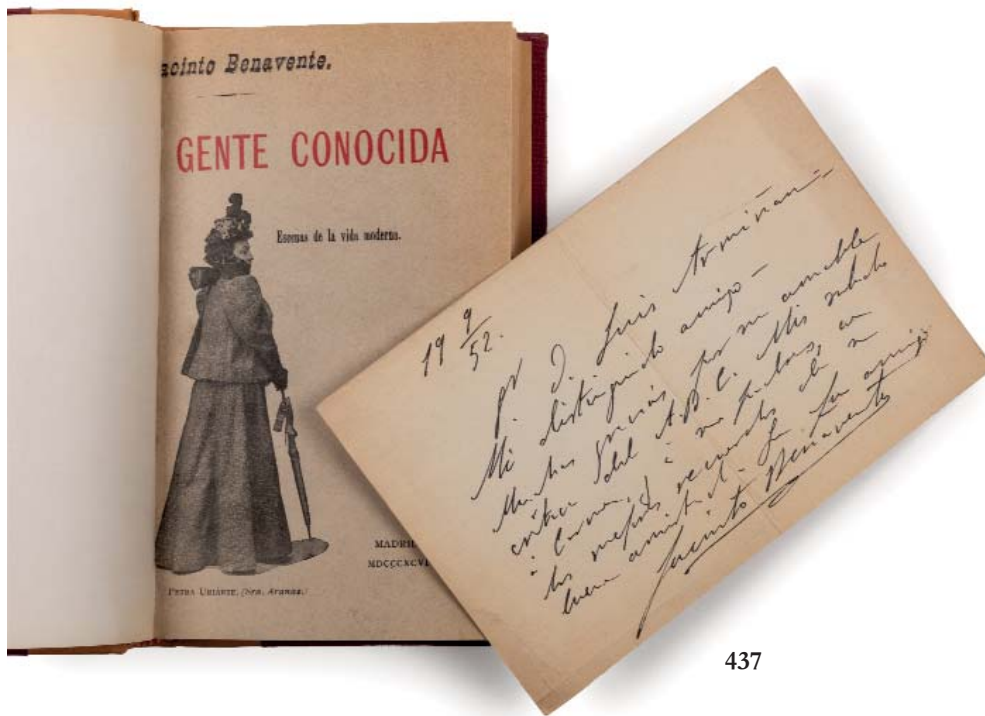 acinto Benavente.
GENTE CONOCIDA
Escenas de la vida moderna.
MADRI
MDCCCXCVI
PETRA URIARTE. (Sra. Aranaz.)
19 9/52.
Sr D. Luis Armiñan-
Mi distinguido amigo-
Muchas gracias por su amable
crítica del A.B.C. Mis
à y à sus
los mejores recuerdos de su
buena amistad. Su amigo
Jacinto Benavente
437